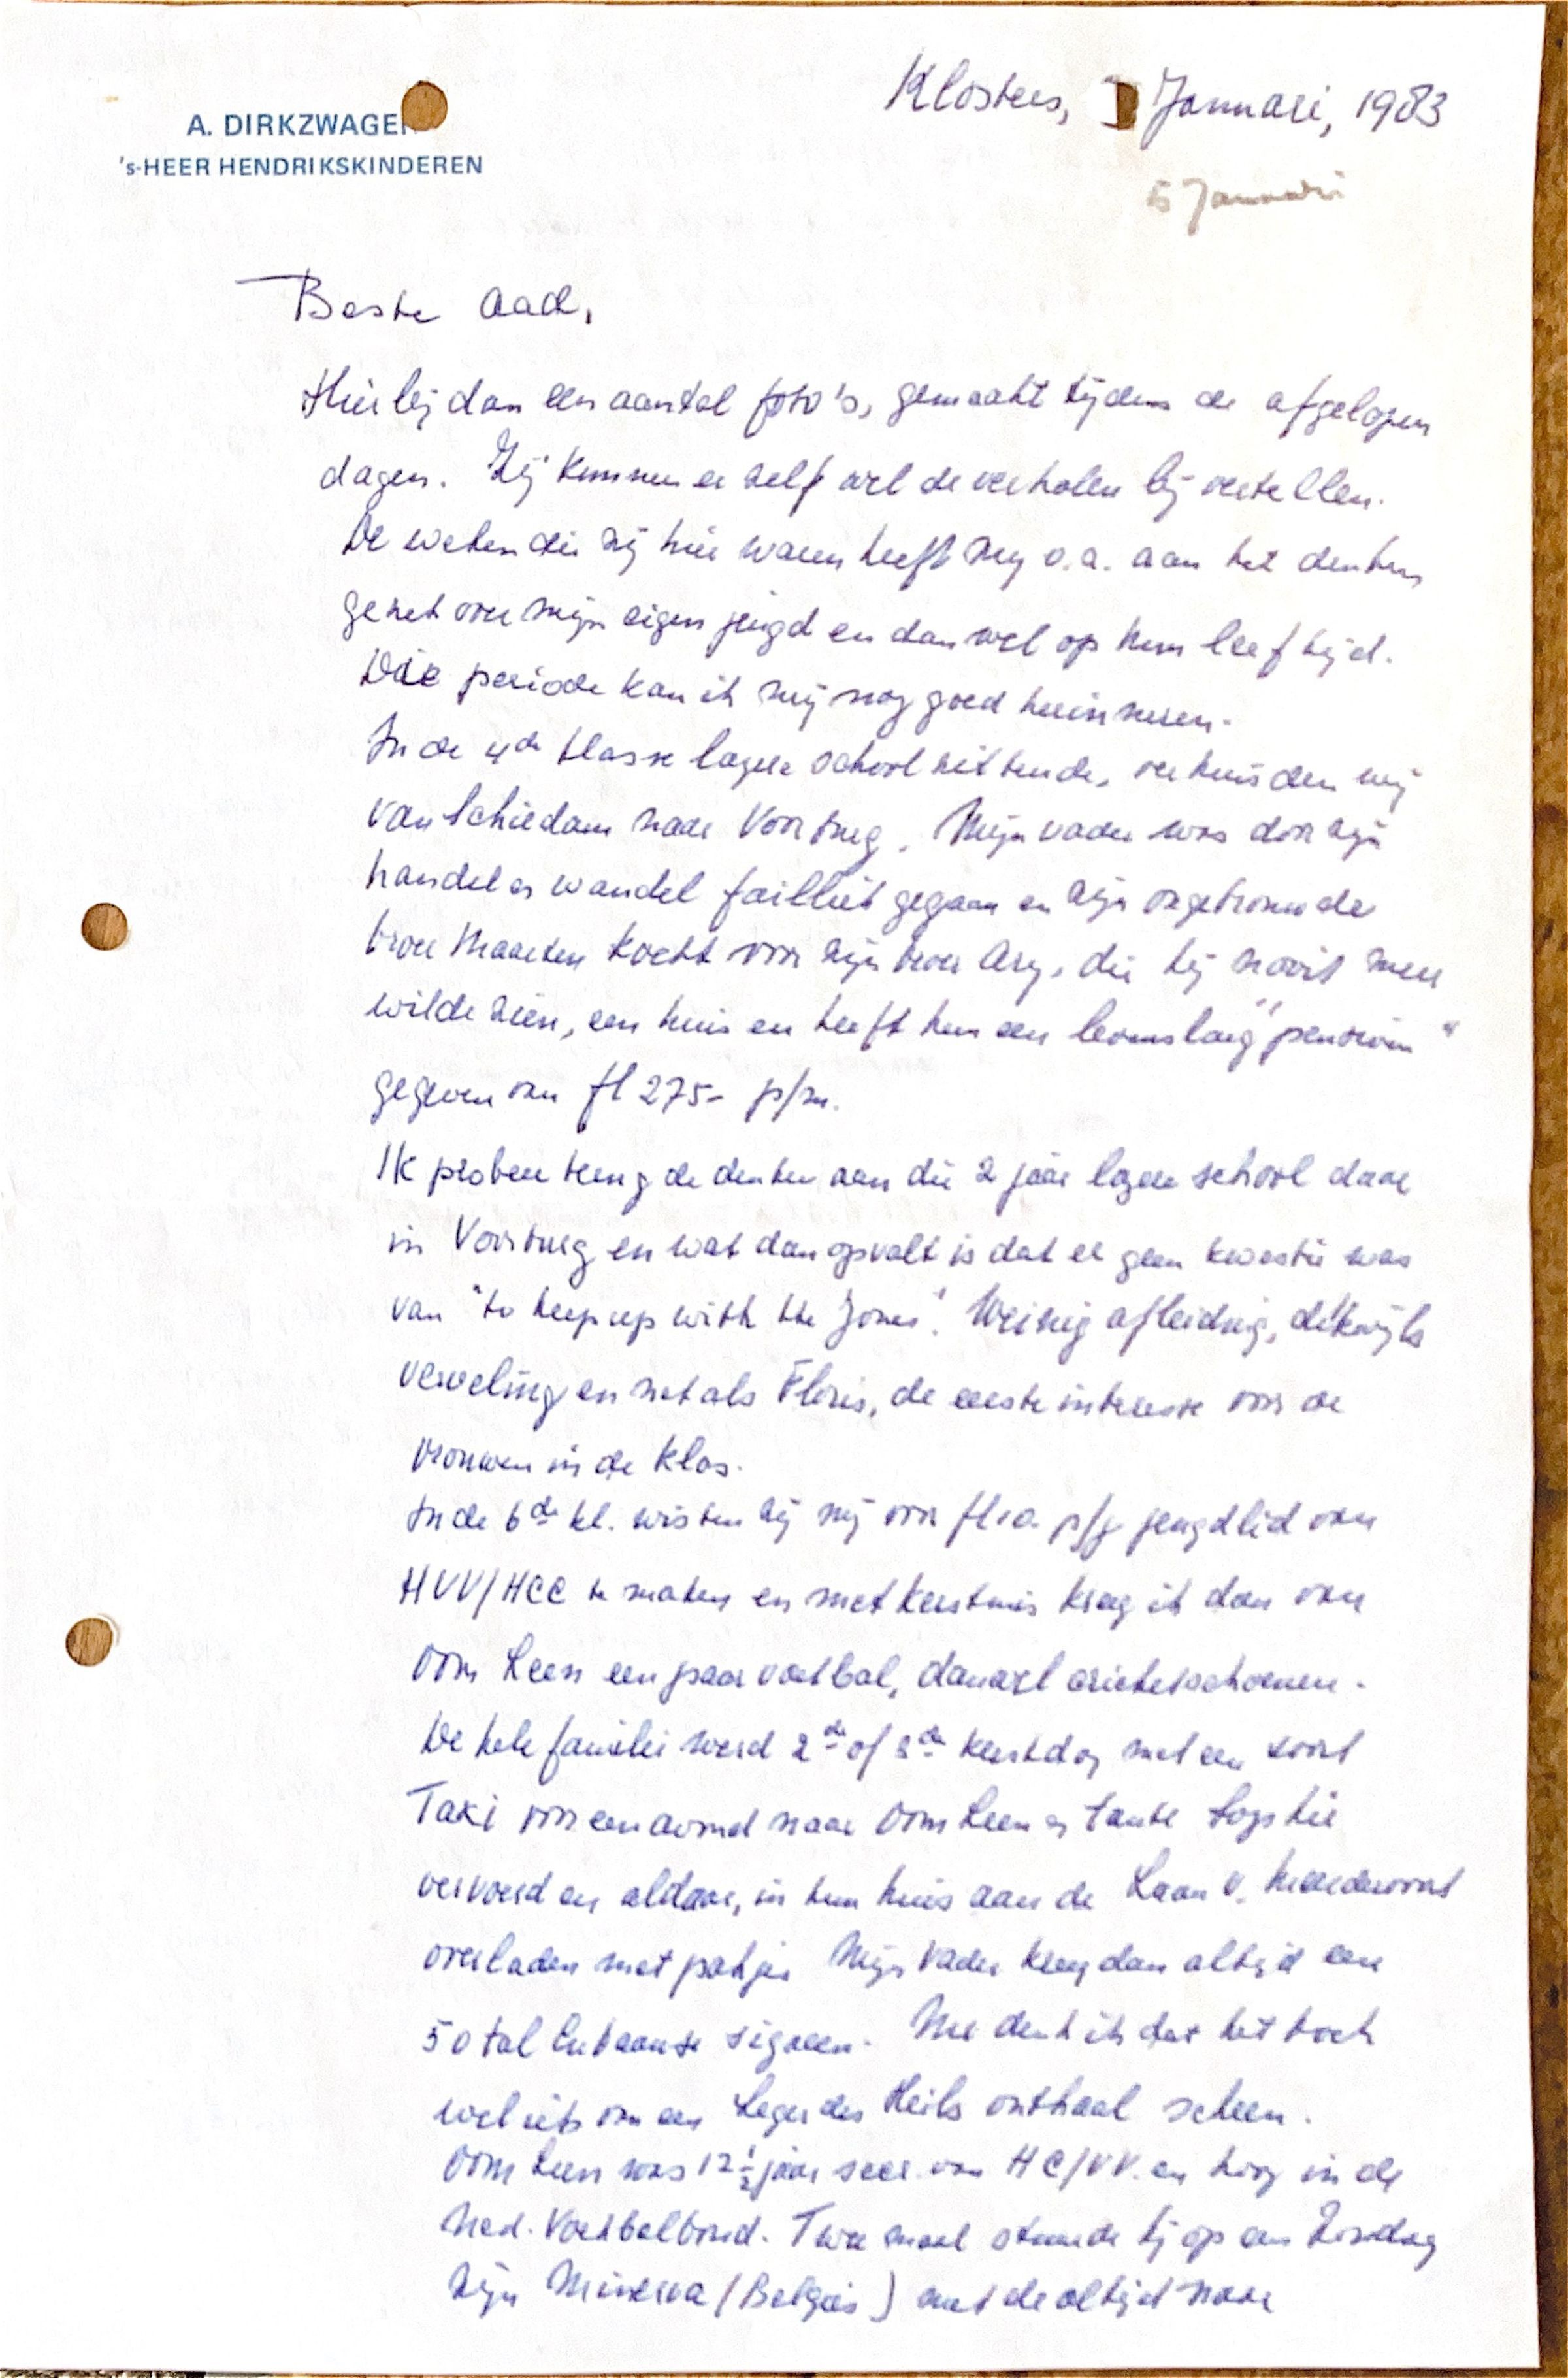 A. DIRKZWAGER
's-HEER HENDRIKSKINDEREN
Klosters, Januari, 1983
5 Januari
Beste Aad,
Hierbij dan een aantal foto's, gemaakt tijdens de afgelopen
dagen. Zij kunnen er zelf wel de verhalen bij vertellen.
De weken die zij hier waren heeft mij o.a. aan het denken
gezet over mijn eigen jeugd en dan wel op hun leeftijd.
Die periode kan ik mij nog goed herinneren.
In de 4de klasse lagere school zittende, verhuisden wij
van Schiedam naar Voorburg. Mijn vader was door zijn
handel en wandel failliet gegaan en zijn ongetrouwde
broer Maarten kocht voor zijn broer Ary, die hij nooit meer
wilde zien, een huis en heeft hun een levenslang "pensioen"
gegeven van fl 275- p/m.
Ik probeer terug de denken aan die 2 jaar lagere school daar
in Voorburg en wat dan opvalt is dat er geen kwestie was
van "to keep up with the Jones". Weinig afleiding, dikwijls
verveling en net als Floris, de eerste interesse voor de
vrouwen in de klas.
In de 6de kl. wisten zij mij voor fl 10. p/j jeugdlid van
HVV/HCC te maken en met kerstmis kreeg ik dan van
Oom Leen een paar voetbal, danwel cricketschoenen.
De hele familie werd 2de of 3de kerstdag met een soort
Taxi voor een avond naar Oom Leen en Tante Sophie
vervoerd en aldaar, in hun huis aan de Laan v. Meerdervoort
overladen met pakjes Mijn Vader kreeg dan altijd een
50 tal Cubaanse sigaren. Nu denk ik dat het toch
wel iets van een Leger des Heils onthaal scheen.
Oom Leen was 12½ jaar secr. van HC/VV. en hoog in de
Ned. Voetbalbond. Twee maal stuurde hij op een Zondag
zijn Minerva (Belgies) met de altijd nare